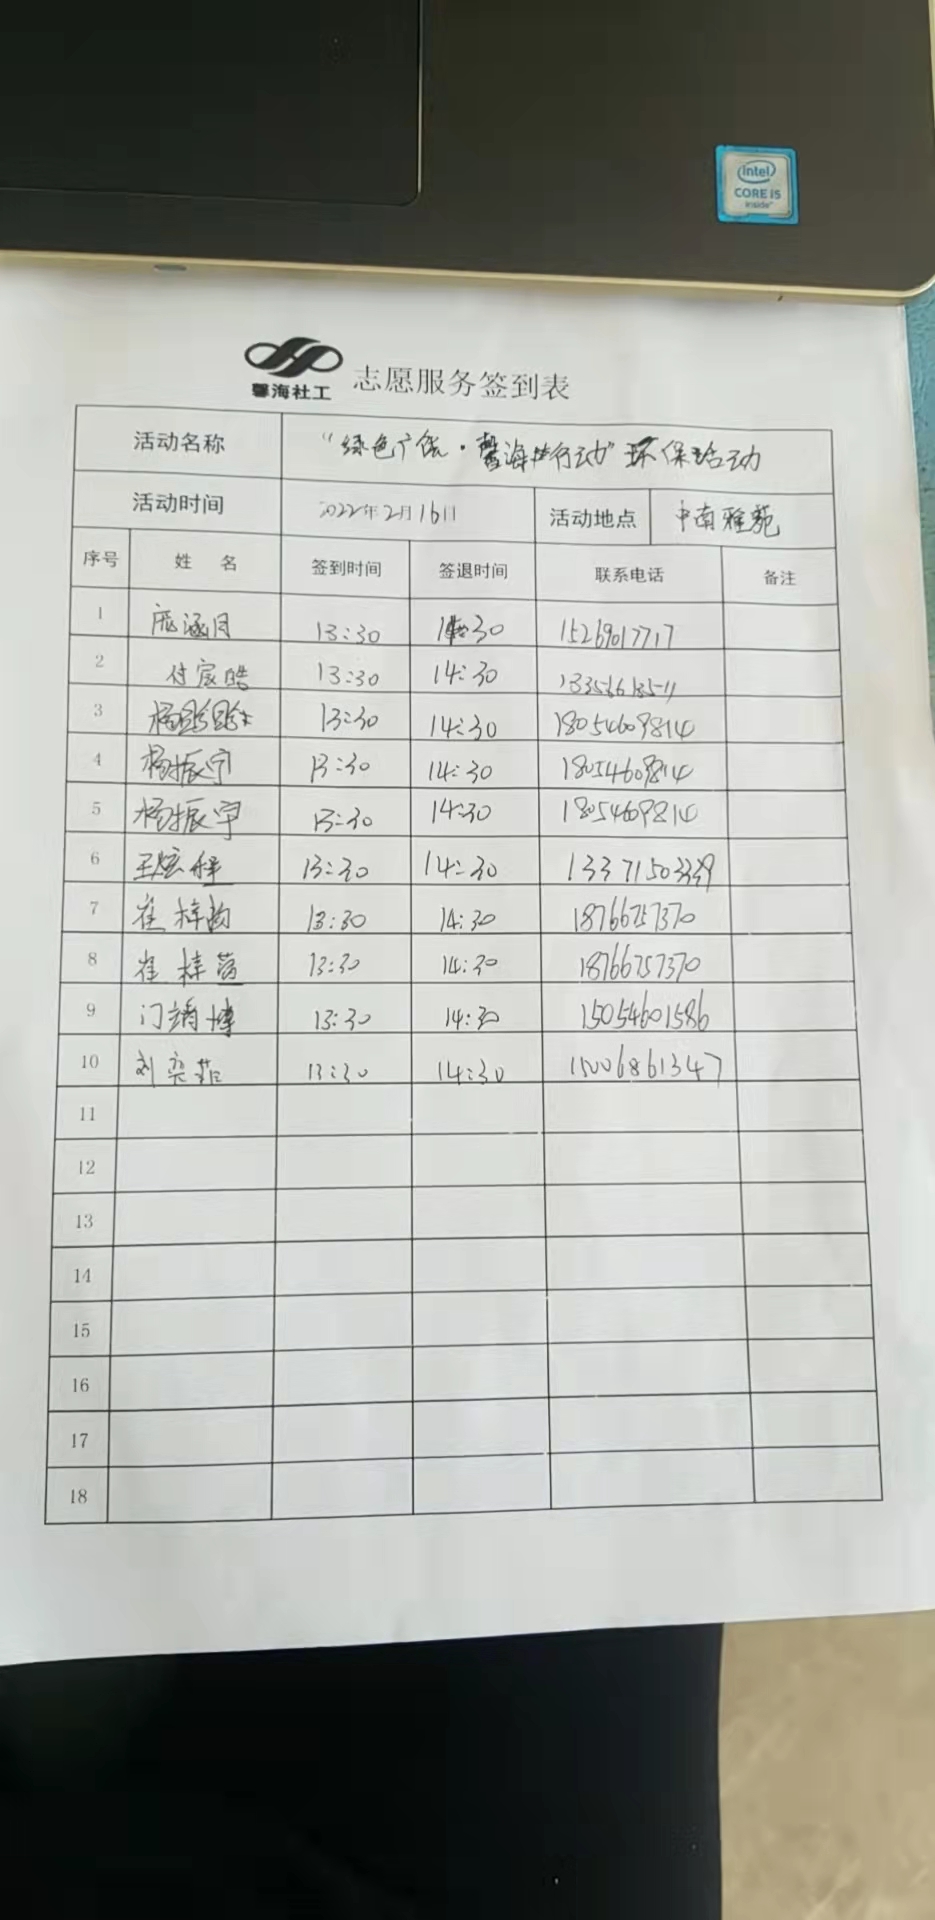 intel
CORE i5
inside
馨海社工 志愿服务签到表
活动名称 "绿色广饶·馨海益行动"环保活动
活动时间 2022年2月16日 活动地点 中南雅苑
序号 姓 名 签到时间 签退时间 联系电话 备注
1 庞涵月 13:30 14:30 15269017717
2 付宸皓 13:30 14:30
3 13:30 14:30 18054609814
4 杨振宁 13:30 14:30 18054609814
5 杨振宇 13:30 14:30 1805469814
6 王炫程 13:30 14:30 13371503339
7 崔梓韵 13:30 14:30 18766757370
8 崔梓萱 13:30 14:30 18766757370
9 门靖博 13:30 14:30 15054601586
10 刘奕菲 13:30 14:30 15006861347
11
12
13
14
15
16
17
18